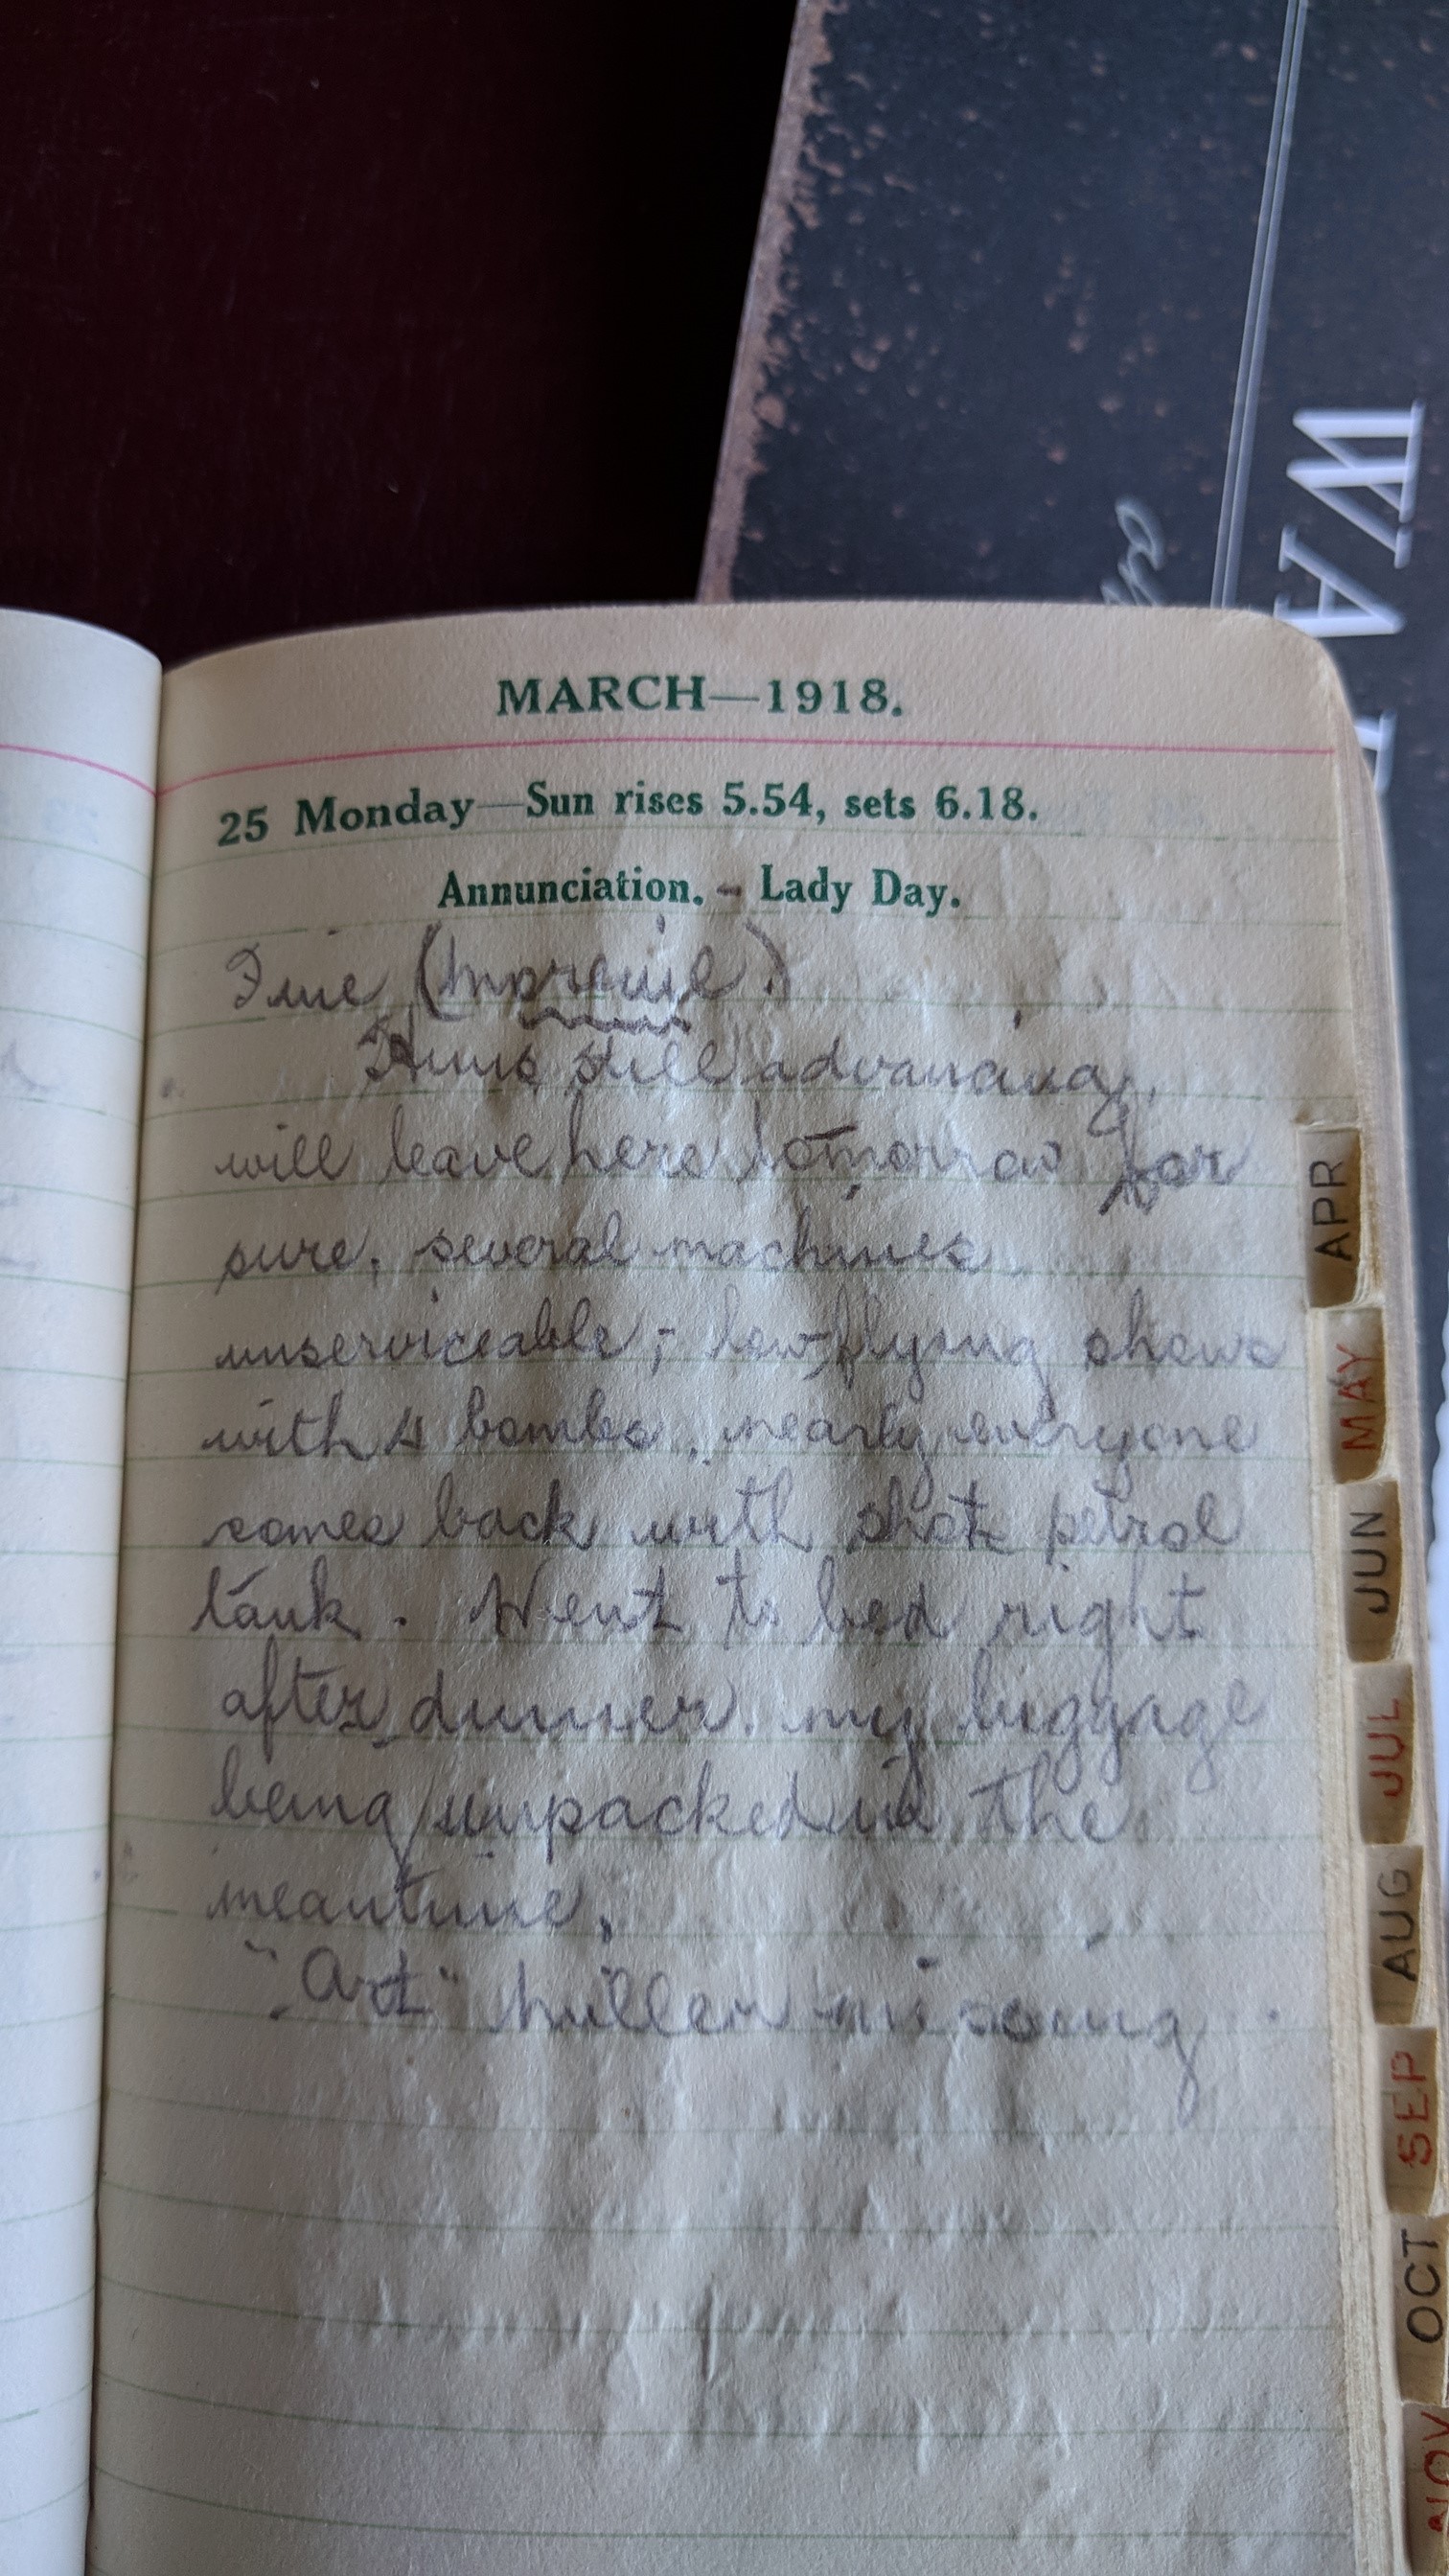 MARCH—1918.
25 Monday—Sun rises 5.54, sets 6.18.
Annunciation. - Lady Day.
Fine
Huns still advancing,
will leave here tomorrow for
sure, several machines
unserviceable, - low flying shows
with 4 bombs, nearly everyone
comes back with shot petrol
tank. Went to bed right
after dinner. my luggage
being unpacked in the
meantime.
"Art" missing.
APR
MAY
JUN
JUL
AUG
SEP
OCT
NOV
WA